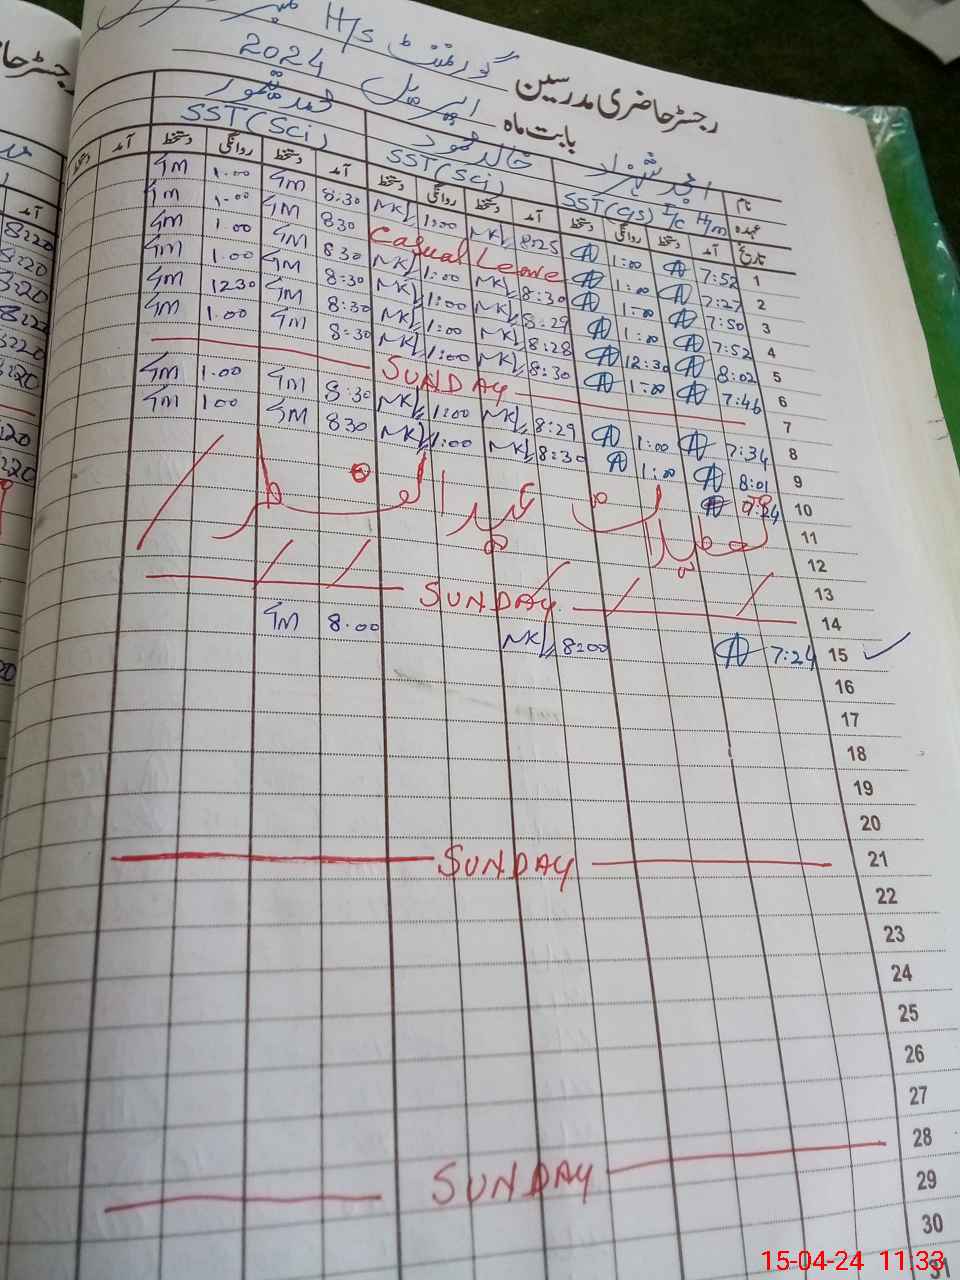 رجسٹر حاضری مدرسین گورنمنٹ H/S
بابت ماہ اپریل 2024
نام امجد شہزاد خالد محمود محمد منظور
عہدہ SST(Gs) I/c H/m SST(Sci) SST(Sci)
تاریخ آمد دستخط روانگی دستخط آمد دستخط روانگی دستخط آمد دستخط روانگی دستخط آمد دستخط
1 7:52 1:00 8:25 NK 1:00 NK 8:30 GM 1.00 GM
2 7:27 1:00 Casual Leave 830 GM 1.00 GM
3 7:50 1:00 8:30 NK 1:00 NK 830 GM 1.00 GM
4 7:52 1:00 8:29 NK 1:00 NK 8:30 GM 1.00 GM
5 8:02 12:30 8:28 NK 1:00 NK 8:30 GM 1230 GM
6 7:46 1:00 8:30 NK 1:00 NK 8:30 GM 1.00 GM
7 SUNDAY
8 7:34 1:00 8:29 NK 1:00 NK 8:30 GM 1.00 GM
9 8:01 1:00 8:30 NK 1:00 NK 830 GM 100 GM
10
11 تعطیلات عید الفطر
12
13
14 SUNDAY
15 7:24 8:00 NK 8.00 GM
16
17
18
19
20
21 SUNDAY
22
23
24
25
26
27
28 SUNDAY
29
30
31
15-04-24 11:33